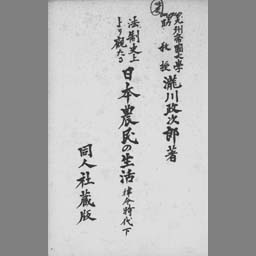 九州帝國大學
助教授
瀧川政次郎著
法制史上
より觀たる
日本農民の生活
律令時代
下
同人社藏版